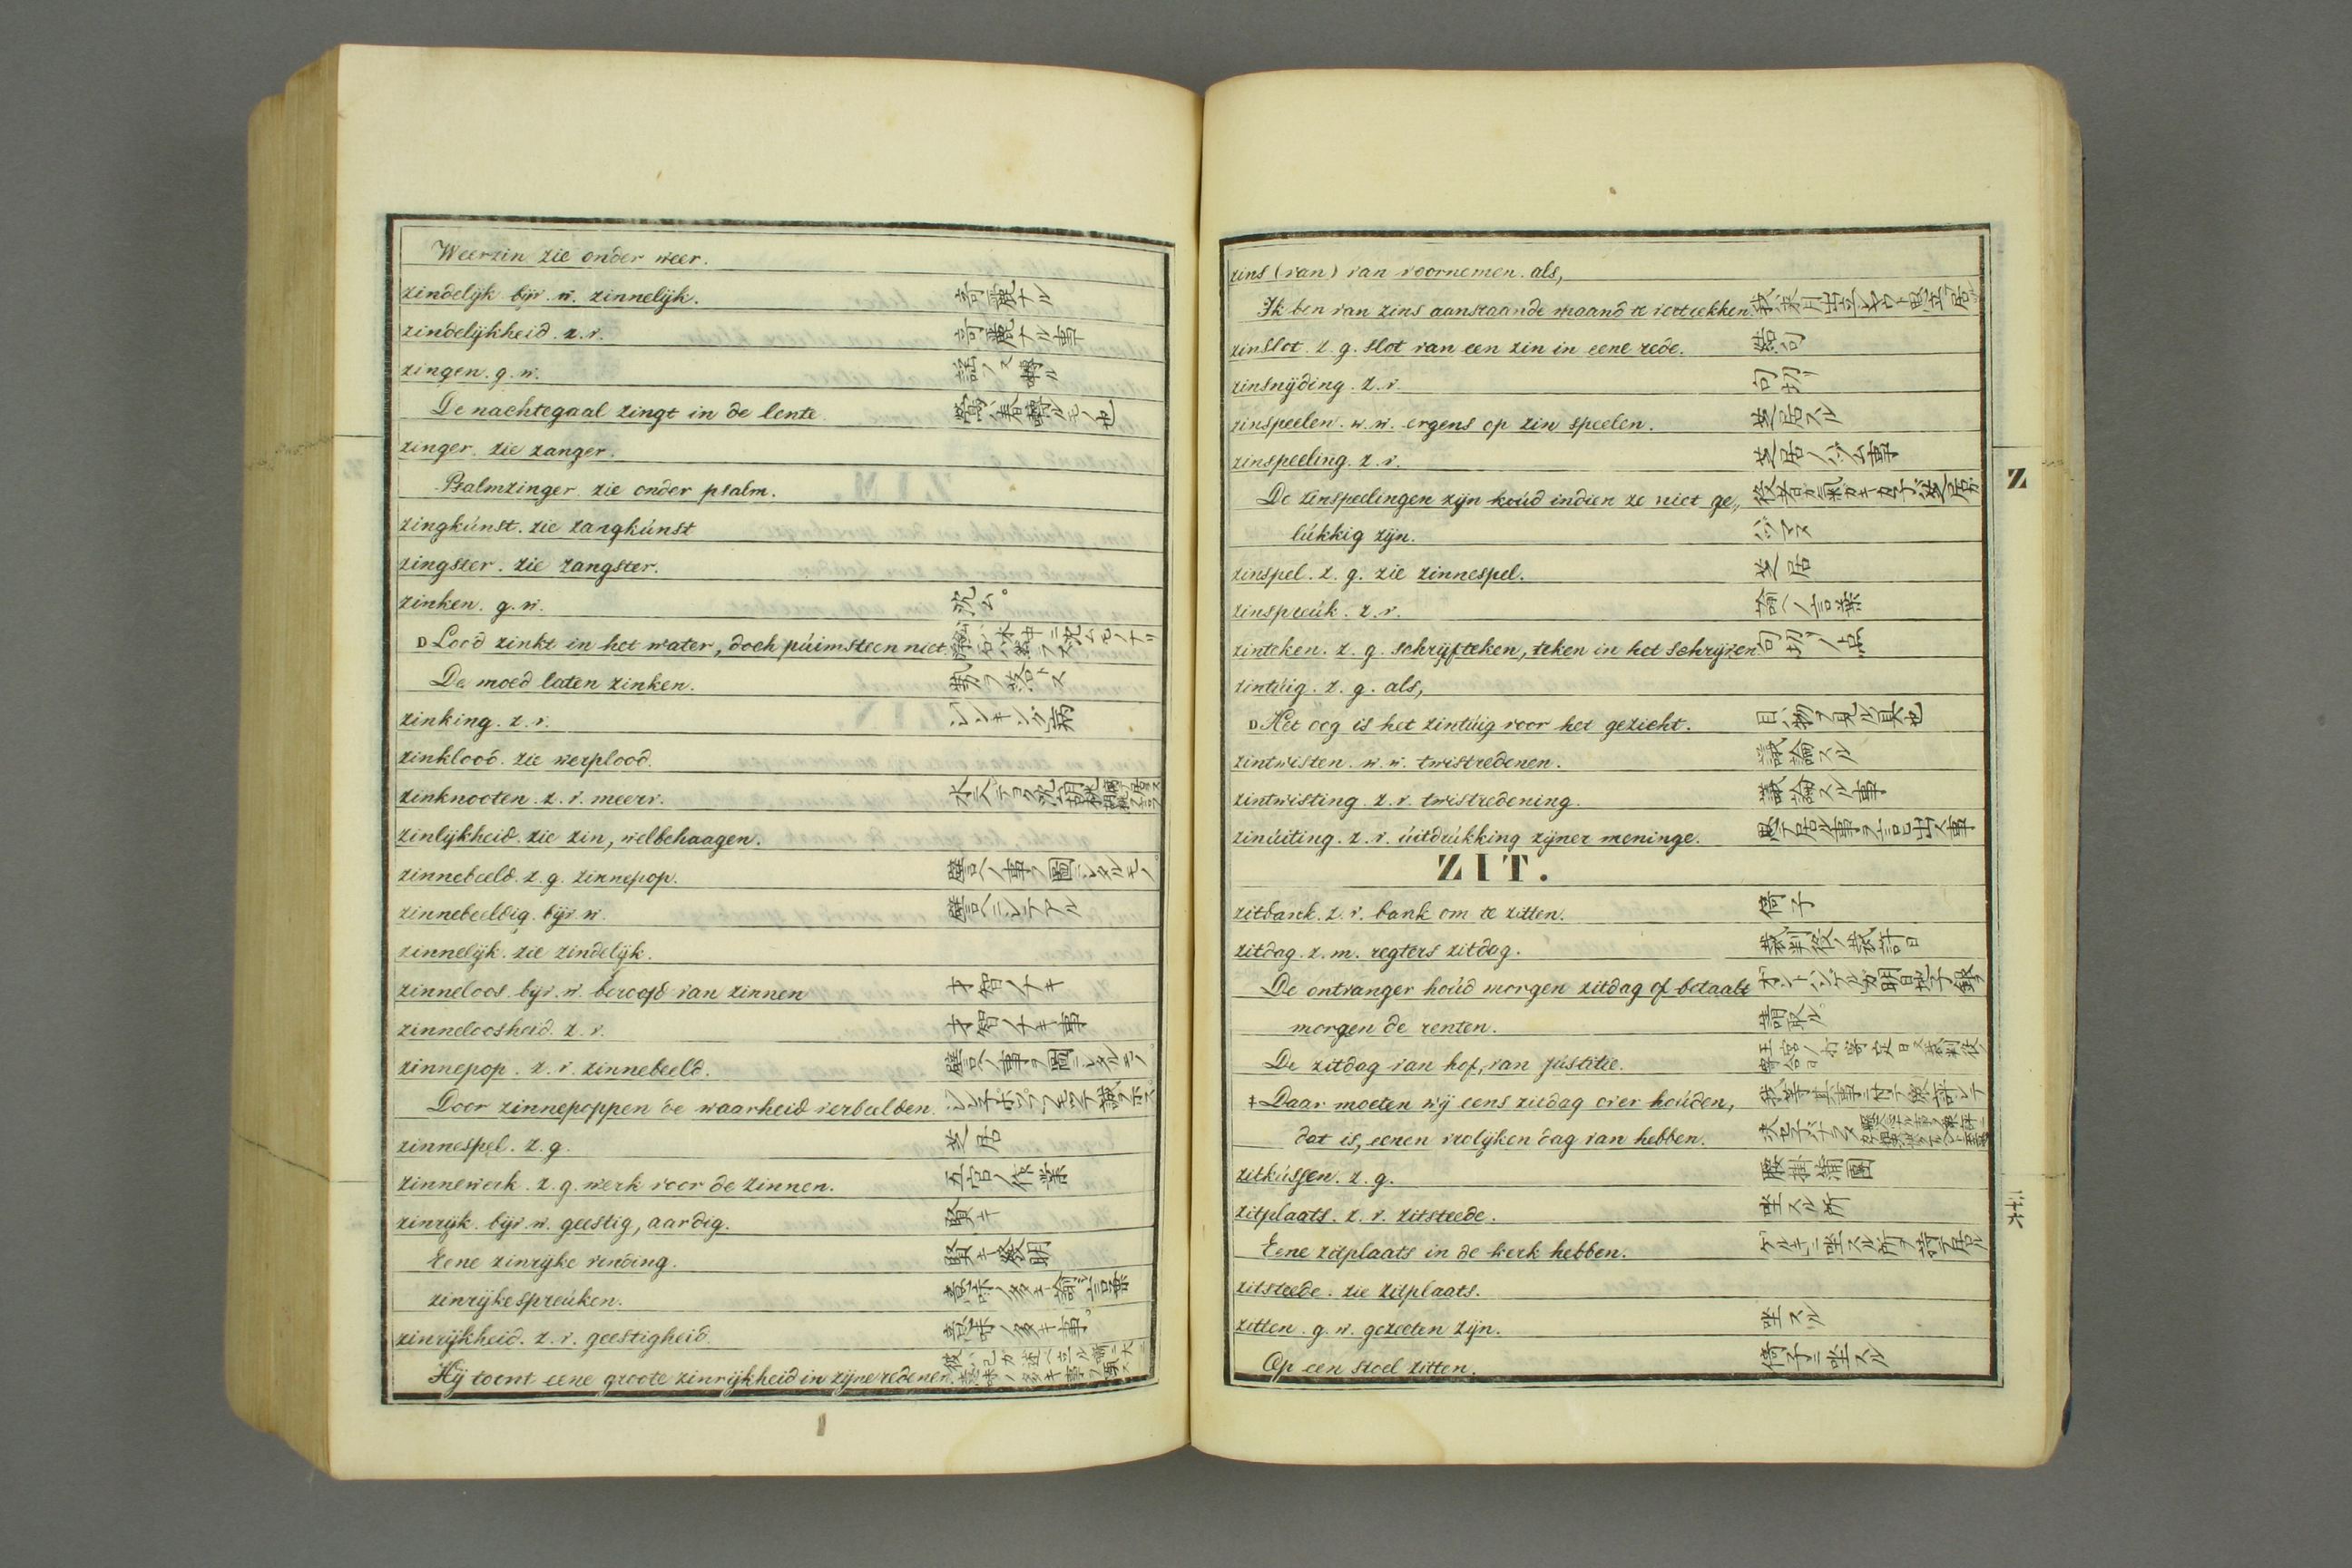 Weerzin zie onder weer.
zindelijk. bijv. w. zinnelijk. 奇麗ナル
zindelijkheid. z. v. 奇麗ナル事
zingen. g. w. 謡フ又囀ル
De nachtegaal zingt in de lente.
zinger. zie zanger.
Psalmzinger zie onder psalm.
zingkúnst. zie zangkúnst
zingster. zie zangster.
zinken. g. w. 沈ム。
D Lood zinkt in het water, doch púimsteen niet.
De moed laten zinken.
zinking. z. v. シンキング病
zinklood. zie werplood.
zinknooten. z. v. meerv.
zinlijkheid. zie zin, welbehaagen.
zinnebeeld. z. g. zinnepop. 譬ヘノ事ヲ圖ニシタルモノ。
zinnebeeldig. bijv. w. 譬ヘニシテアル
zinnelijk. zie zindelijk.
zinneloos. bijv. w. beroofd van zinnen 才智ノナキ
zinneloosheid. z. v. 才智ノナキ事
zinnepop. z. v. zinnebeeld. 譬ヘノ事ヲ圖ニシタルモノ。
Door zinnepoppen de waarheid verbeelden.
zinnespel. z. g. 芝居
zinnewerk. z. g. werk voor de zinnen. 五官ノ作業
zinrijk. bijv. w. geestig, aardig. 賢キ
Eene zinrijke vinding. 賢キ發明
zinrijke spreúken. 意味ノ多キ諭ノ言葉
zinrijkheid. z. v. geestigheid. 意味ノ多キ事。
Hij toont eene groote zinrijkheid in zijne redenen.
zins (van) van voornemen. als,
Ik ben van zins aanstaande maand te vertrekken.
zinslot. z. g. slot van een zin in eene rede. 結句
zinsnijding. z. v. 句切リ
zinspeelen. w. w. ergens op zin speelen. 芝居スル
zinspeeling. z. v.
De zinspeelingen zijn koúd indien ze niet ge,,
lúkkig zijn.
zinspel. z. g. zie zinnespel. 芝居
zinspreúk. z. v. 諭ヘノ言葉
zinteken. z. g. schrijfteken, teken in het schrijven. 句切リノ点
zintúig. z. g. als,
D Het oog is het zintúig voor het gezicht. 目ハ物ヲ見ル具也
zintwisten. w. w. twistredenen. 議論スル
zintwisting. z. v. twistredening. 議論スル事
zinúiting. z. v. úitdrúkking zijner meninge. 思テ居ル事ヲ言出ス事
ZIT.
zitbank. z. v. bank om te zitten. 倚子
zitdag. z. m. regters zitdag.
De ontvanger hoúd morgen zitdag of betaalt
morgen de renten.
De zitdag van hof, van jústitie.
‡ Daar moeten wij eens zitdag over hoúden,
dat is, eenen vrolijken dag van hebben.
zitkússen. z. g. 腰掛蒲團
zitplaats. z. v. zitsteede. 坐スル所
Eene zitplaats in de kerk hebben.
zitsteede. zie zitplaats.
zitten. g. w. gezeeten zijn. 坐スル
Op een stoel zitten. 倚子ニ坐スル
Z